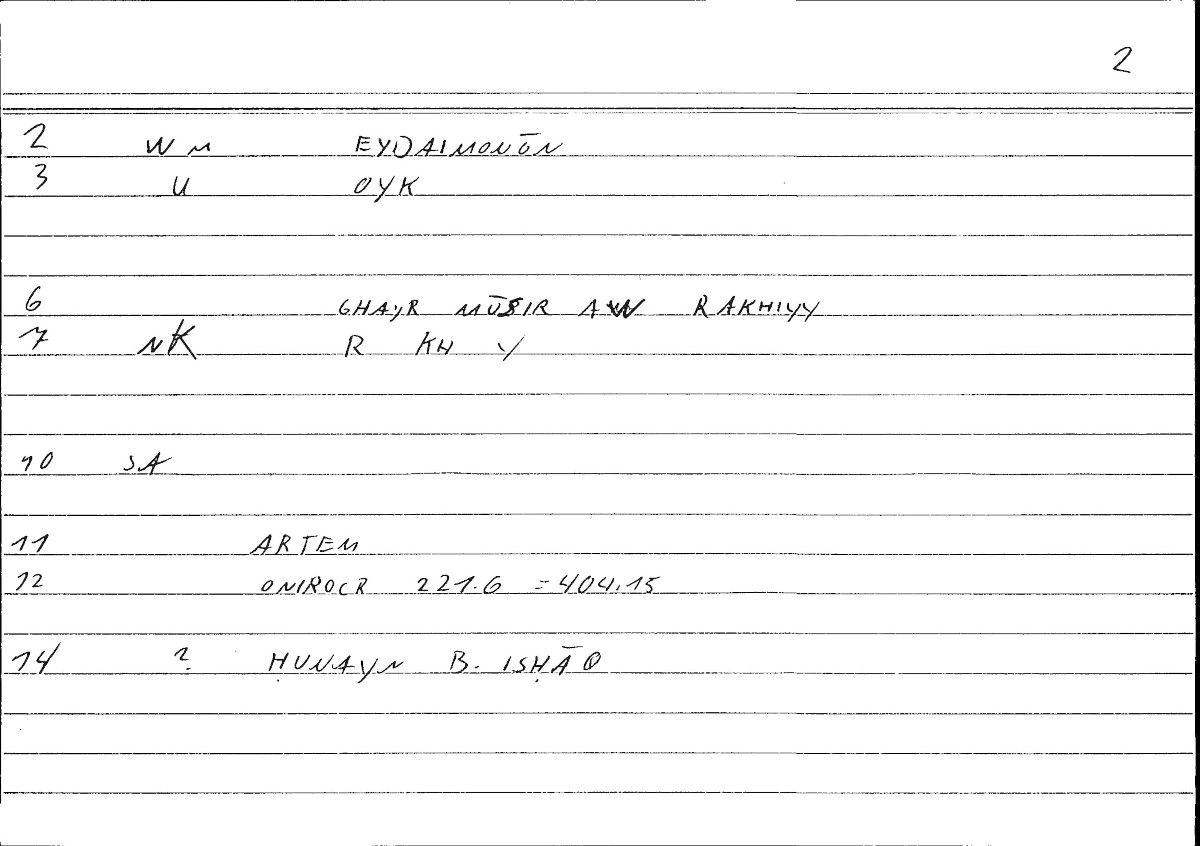 2
2 W M EYDAIMONŌN
3 U OYK
6 GHAYR MŪSIR AW RAKHIYY
7 NK R KH Y
10 SA
11 ARTEM
12 ONIROCR 221.6 =404.15
14 ? ḤUNAYN B. ISḤĀQ